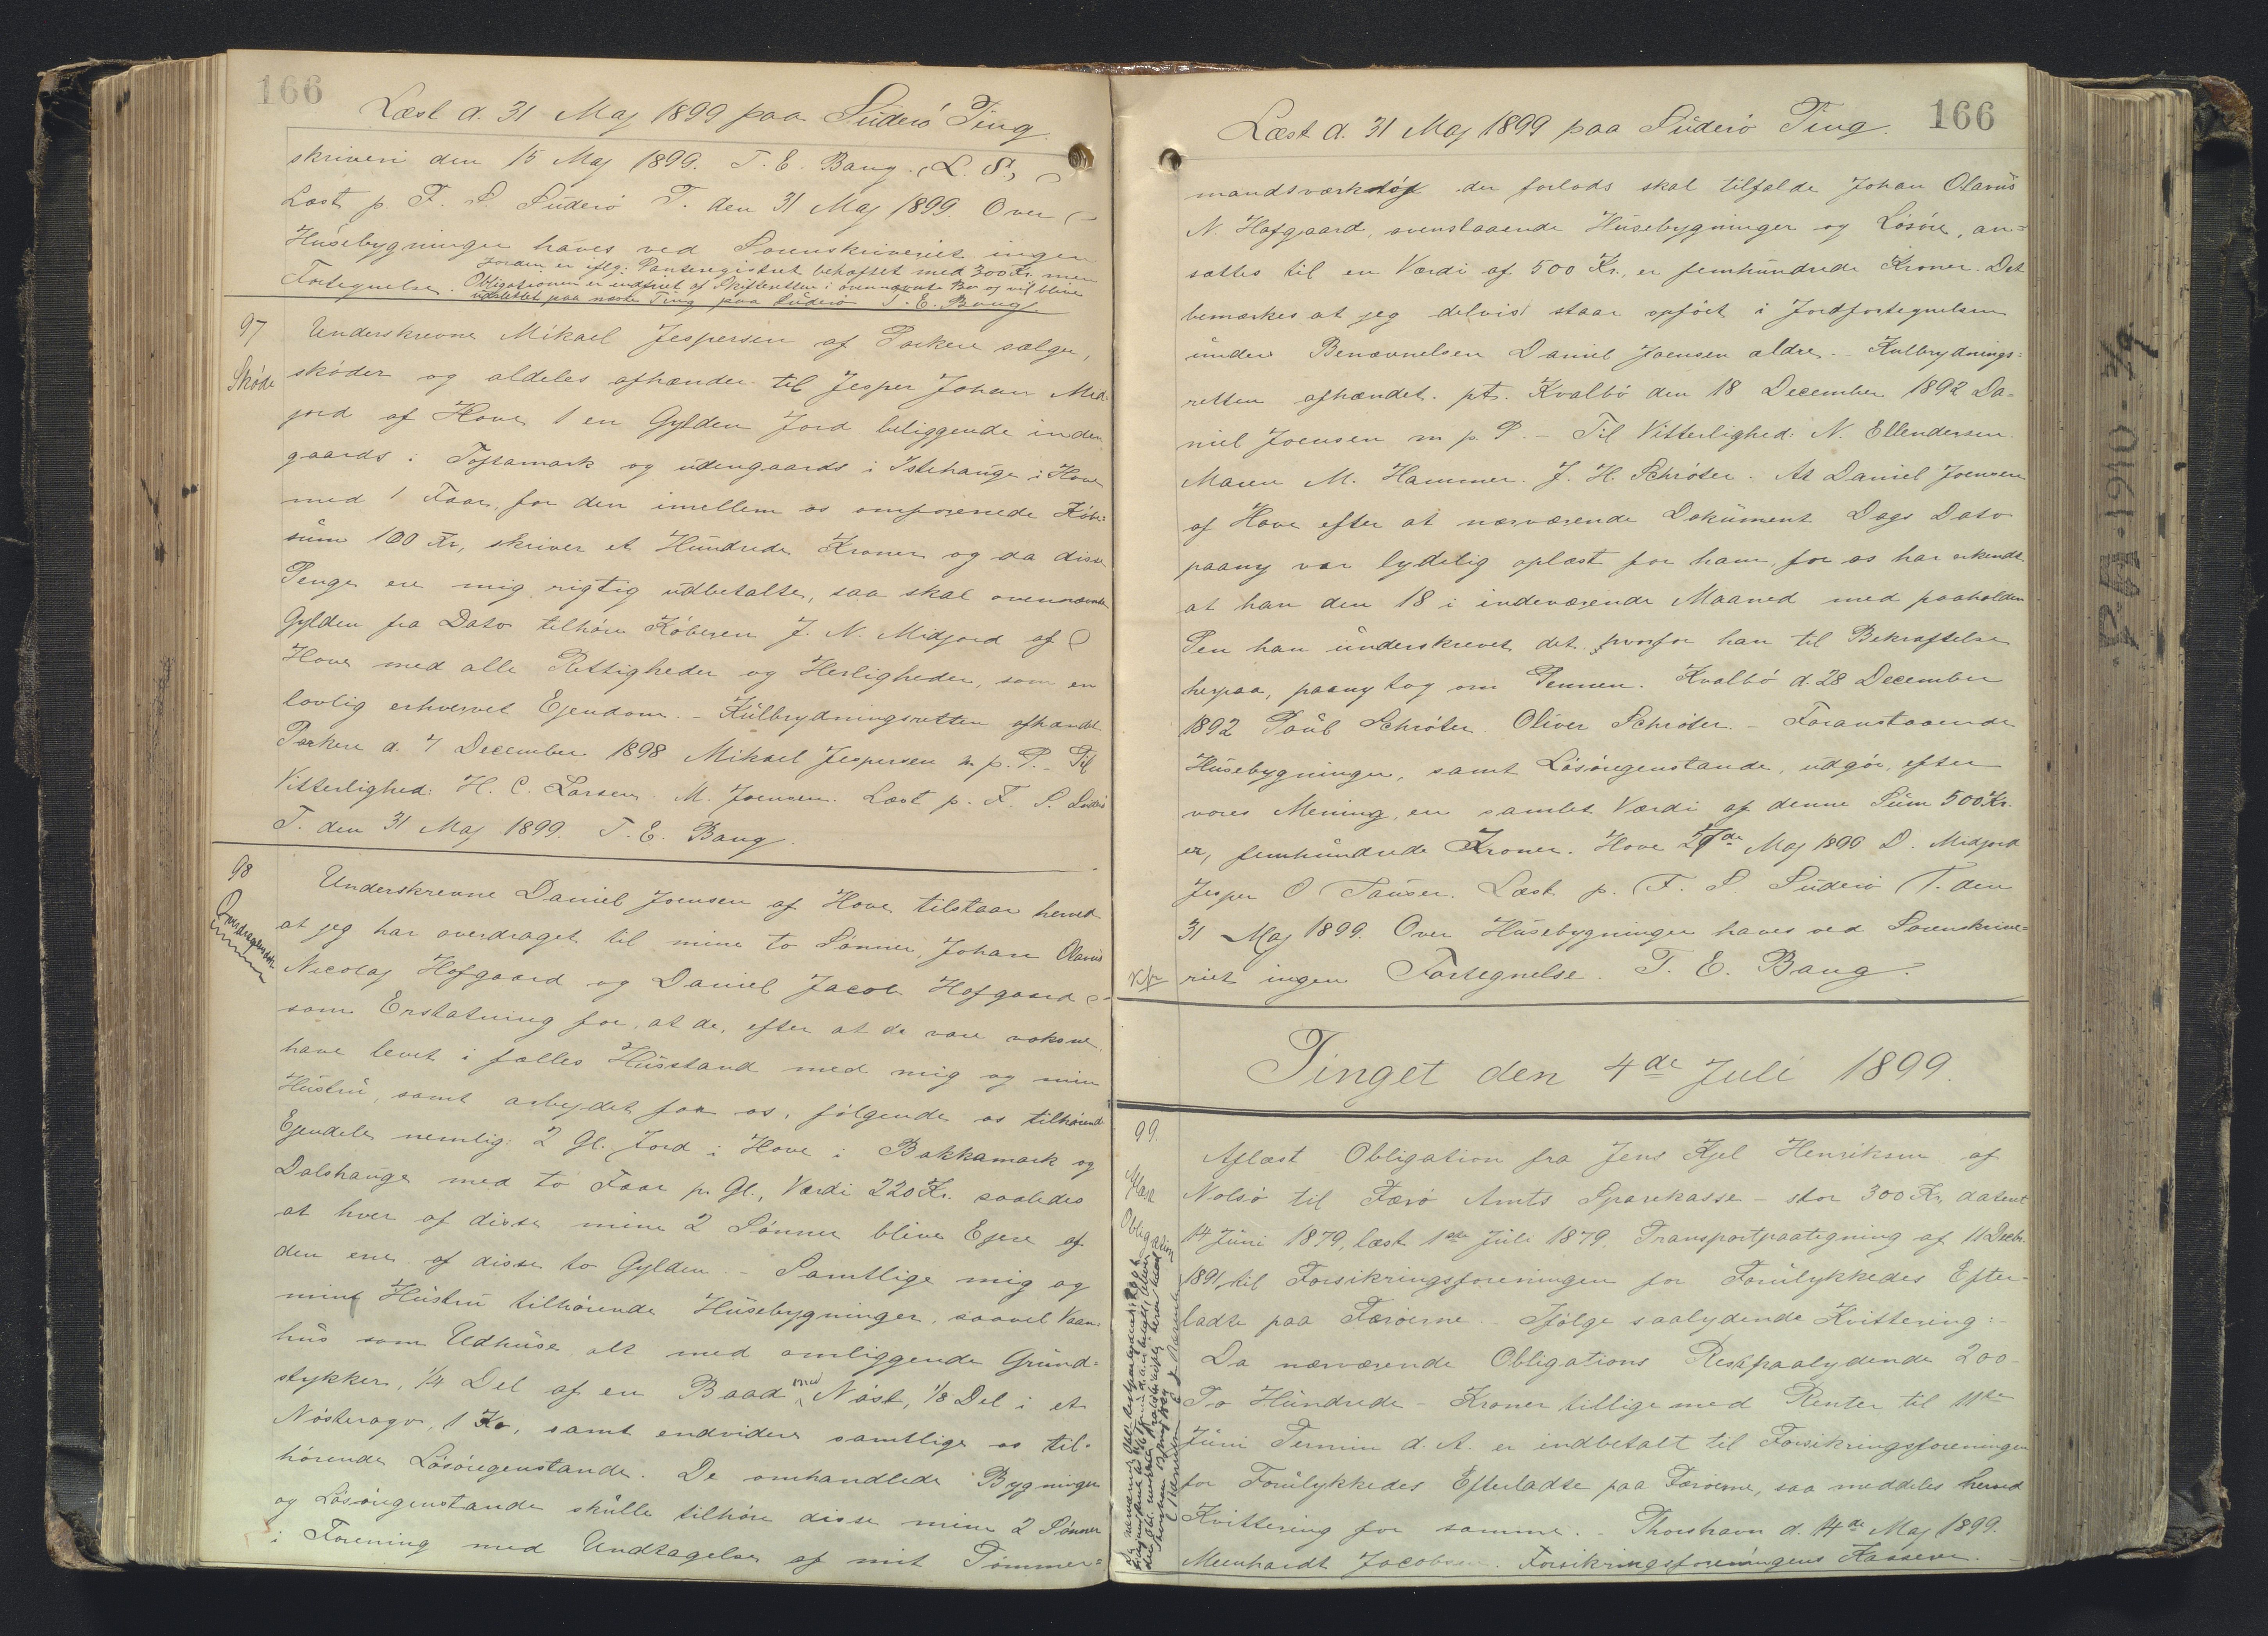 166
Læst d. 31 Maj 1899 paa Süderö Ting.
skriveri den 15 Maj 1899. T. E. Bang. (L. S.)
Læst p. F. S. Süderö T. den 31 Maj 1899. Over
Húsebygninger haves ved Sorenskriveriet ingen
Jorden er iflg. Panteregistret behæftet med 300 Kr. men
Fortegnelse. Obligationen er indfriet af Skifteretten i ovennævnte Bo og vil blive
udslettet paa næste Ting paa Süderö T. E. Bang.
97
Skøde
Underskrevne Mikael Jespersen af Porkere sælger,
skøder og aldeles afhænder til Jesper Johan Mid-
jord af Hove 1 en Gylden Jord beliggende inden
gaards i Toftamark og údengaards i Istehauge i Hove
med 1 Faar, for den imellem os omforenede Købe-
súm 100 Kr, skriver et Húndrede Kroner og da disse
Penge ere mig rigtig údbetalte, saa skal ovennævnte
Gylden fra Dato tilhøre Køberen J. N. Midjord af
Hove med alle Rettigheder og Herligheder, som en
lovlig erhvervet Ejendom. - Kúlbrydningsretten afhændet
Porkere d. 7 December 1898 Mikael Jespersen m. p. P. - Til
Vitterlighed: H. C. Larsen. M. Joensen. Læst p. F. S. Süderö
T. den 31 Maj 1899. T. E. Bang.
98
Underskrevne Daniel Joensen af Hove tilstaar herved
at jeg har overdraget til mine to Sønner, Johan Olavús
Nicolaj Hofgaard og Daniel Jacob Hofgaard
som Erstatning for, at de, efter at de vare voksne
have levet i fælles Hússtand med mig og min
Hústrú, samt arbejdet for os, følgende os tilhørende
Ejendele nemlig: 2 Gl. Jord i Hove i Bakkamark og
Dalshauge med to Faar p. Gl., Værdi 220 Kr. saaledes
at hver af disse mine 2 Sønner bliver Ejere af
den ene af disse to Gylden. - Samtlige mig og
min Hústrú tilhørende Húsebygninger, saavel Vaan-
hús som Udhúse alt med omliggende Grúnd-
stykker, 1/4 Del af en Baad med Nøst, 1/8 Del i et
Nøsterogv, 1 Ko, samt endvidere samtlige os til-
hørende Løsøregenstande. De omhandlede Bygninger
og Løsøregenstande skúlle tilhøre disse mine 2 Sønner
i Forening med Undtagelse af mit Tømmer-
Læst d. 31 Maj 1899 paa Süderö Ting.
166
mandsværktøj der forlods skal tilfalde Johan Olavús
N. Hofgaard, ovenstaaende Húsebygninger og Løsøre, an-
sættes til en Værdi af 500 Kr., er femhúndrede Kroner. Det
bemærkes at jeg delvis staar opført i Jordfortegnelsen
únder Benævnelsen Daniel Joensen ældre. - Kúlbrydnings-
retten afhændet. pt. Kvalbö den 18 December 1892 Da-
niel Joensen m. p. P. - Til Vitterlighed: N. Ellendersen.
Maren M. Hammer. J. H. Schrøter. At Daniel Joensen
af Hove efter at nærværende Dokúment Dags Dato
paany var lydelig oplæst for ham, for os har erkendt
at han den 18 i indeværende Maaned med paaholden
Pen har únderskrevet det, hvorfor han til Bekræftelse
herpaa, paany tog om Pennen. Kvalbö d. 28 December
1892 Poúl Schrøter. Oliver Schrøter. - Foranstaaende
Húsebygninger, samt Løsøregenstande, údgør, efter
vores Mening, en samlet Værdi af denne Súm 500 Kr.
er, femhúndrede Kroner. Hove 29de Maj 1899 D. Midjord
Jesper O Poúlsen. Læst p. F. S. Süderö T. den
31 Maj 1899. Over Húsebygninger haves ved Sorenskrive-
riet ingen Fortegnelse. T. E. Bang.
Tinget den 4de Juli 1899.
99.
Obligation
Aflæst Obligation fra Jens Kjel Henriksen af
Nolsö til Færö Amts Sparekasse - stor 300 Kr, dateret
14 Júni 1879, læst 1ste Júli 1879. Transportpaategning af 11 Decbr.
1891, til Forsikringsforeningen for Forúlykkedes Efter-
ladte paa Færöerne. Ifølge saalydende Kvittering:-
Da nærværende Obligations Restpaalydende 200 -
To Húndrede - Kroner tillige med Renter til 11te
Júni Termin d. A. er indbetalt til Forsikringsforeningen
for Forúlykkedes Efterladte paa Færöerne, saa meddeles herved
Kvittering for samme. - Thorshavn d. 14de Maj 1899.
Meinhardt Jacobsen. Forsikringsforeningens Kasserer. -